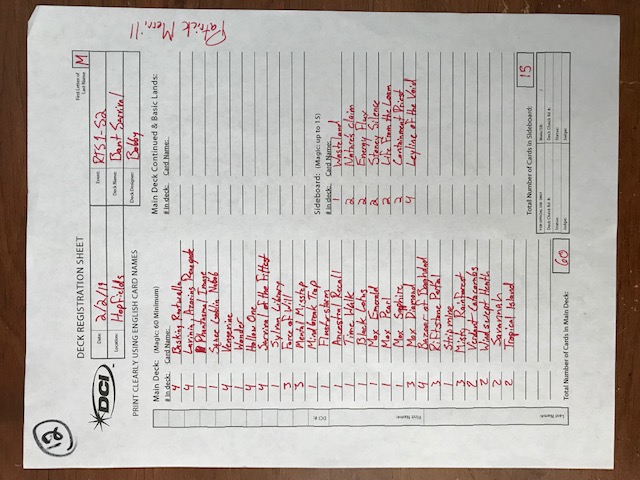 12
DECK REGISTRATION SHEET
First Letter of
Last Name
M
DCI
Date: 2/2/19
Event: RTS1-S2
Location: Hopfields
Deck Name: Bant Survival
Deck Designer: Bobby
PRINT CLEARLY USING ENGLISH CARD NAMES
Patrick Merrill
Main Deck: (Magic: 60 Minimum)
# in deck: Card Name:
4 Basking Rootwalla
4 Lavinia, Azorius Renegade
1 Phantasmal Image
1 Squee Goblin Nabob
4 Vengevine
1 Wonder
4 Hollow One
4 Survival of the Fittest
1 Sylvan Library
3 Force of Will
3 Mental Misstep
1 Mindbreak Trap
1 Flusterstorm
1 Ancestral Recall
1 Time Walk
1 Black Lotus
1 Mox Emerald
1 Mox Pearl
1 Mox Sapphire
3 Mox Diamond
4 Bazaar of Baghdad
3 Riftstone Portal
1 Stripmine
3 Misty Rainforest
2 Verdant Catacombs
2 Windswept Heath
2 Savannah
2 Tropical Island
Total Number of Cards in Main Deck: 60
Main Deck Continued & Basic Lands:
# in deck: Card Name:
Sideboard: (Magic: up to 15)
# in deck: Card Name:
1 Wasteland
2 Nature's Claim
2 Energy Flux
2 Stoney Silence
2 Life From the Loam
2 Containment Priest
4 Leyline of the Void
Total Number of Cards in Sideboard: 15
FOR OFFICIAL USE ONLY
Deck Check Rd #:
Deck Check Rd #:
Status:
Status:
Judge:
Judge:
DCI #:
First Name:
Last Name: